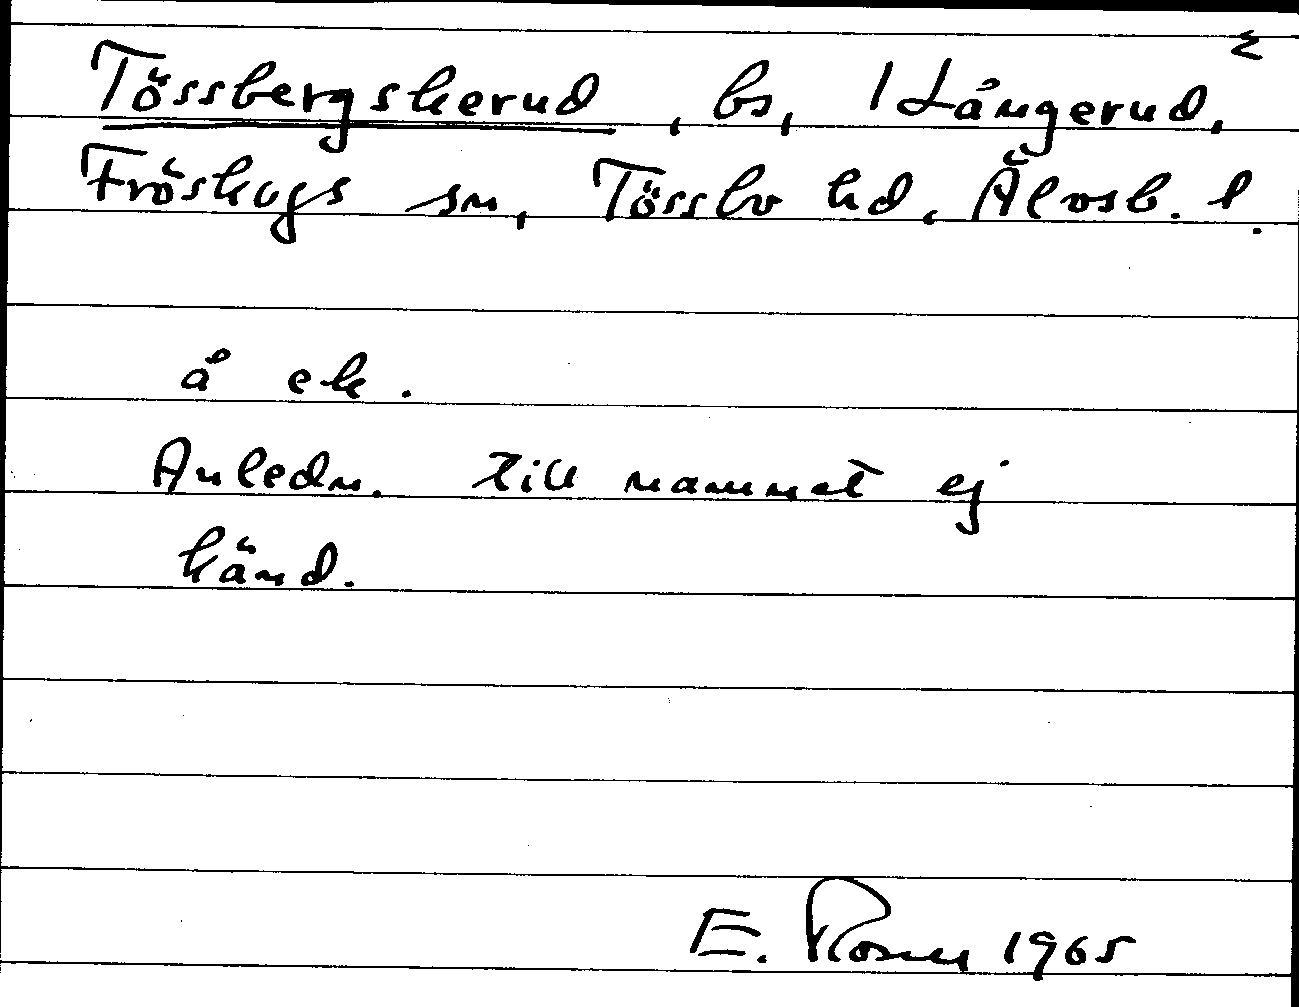 Tössbergskerud, bs, 1 Långerud, 2
Fröskogs sn, Tössbo hd, Älvsb. l.
å ek.
Anledn. till namnet ej
känd.
E. Rosell 1965